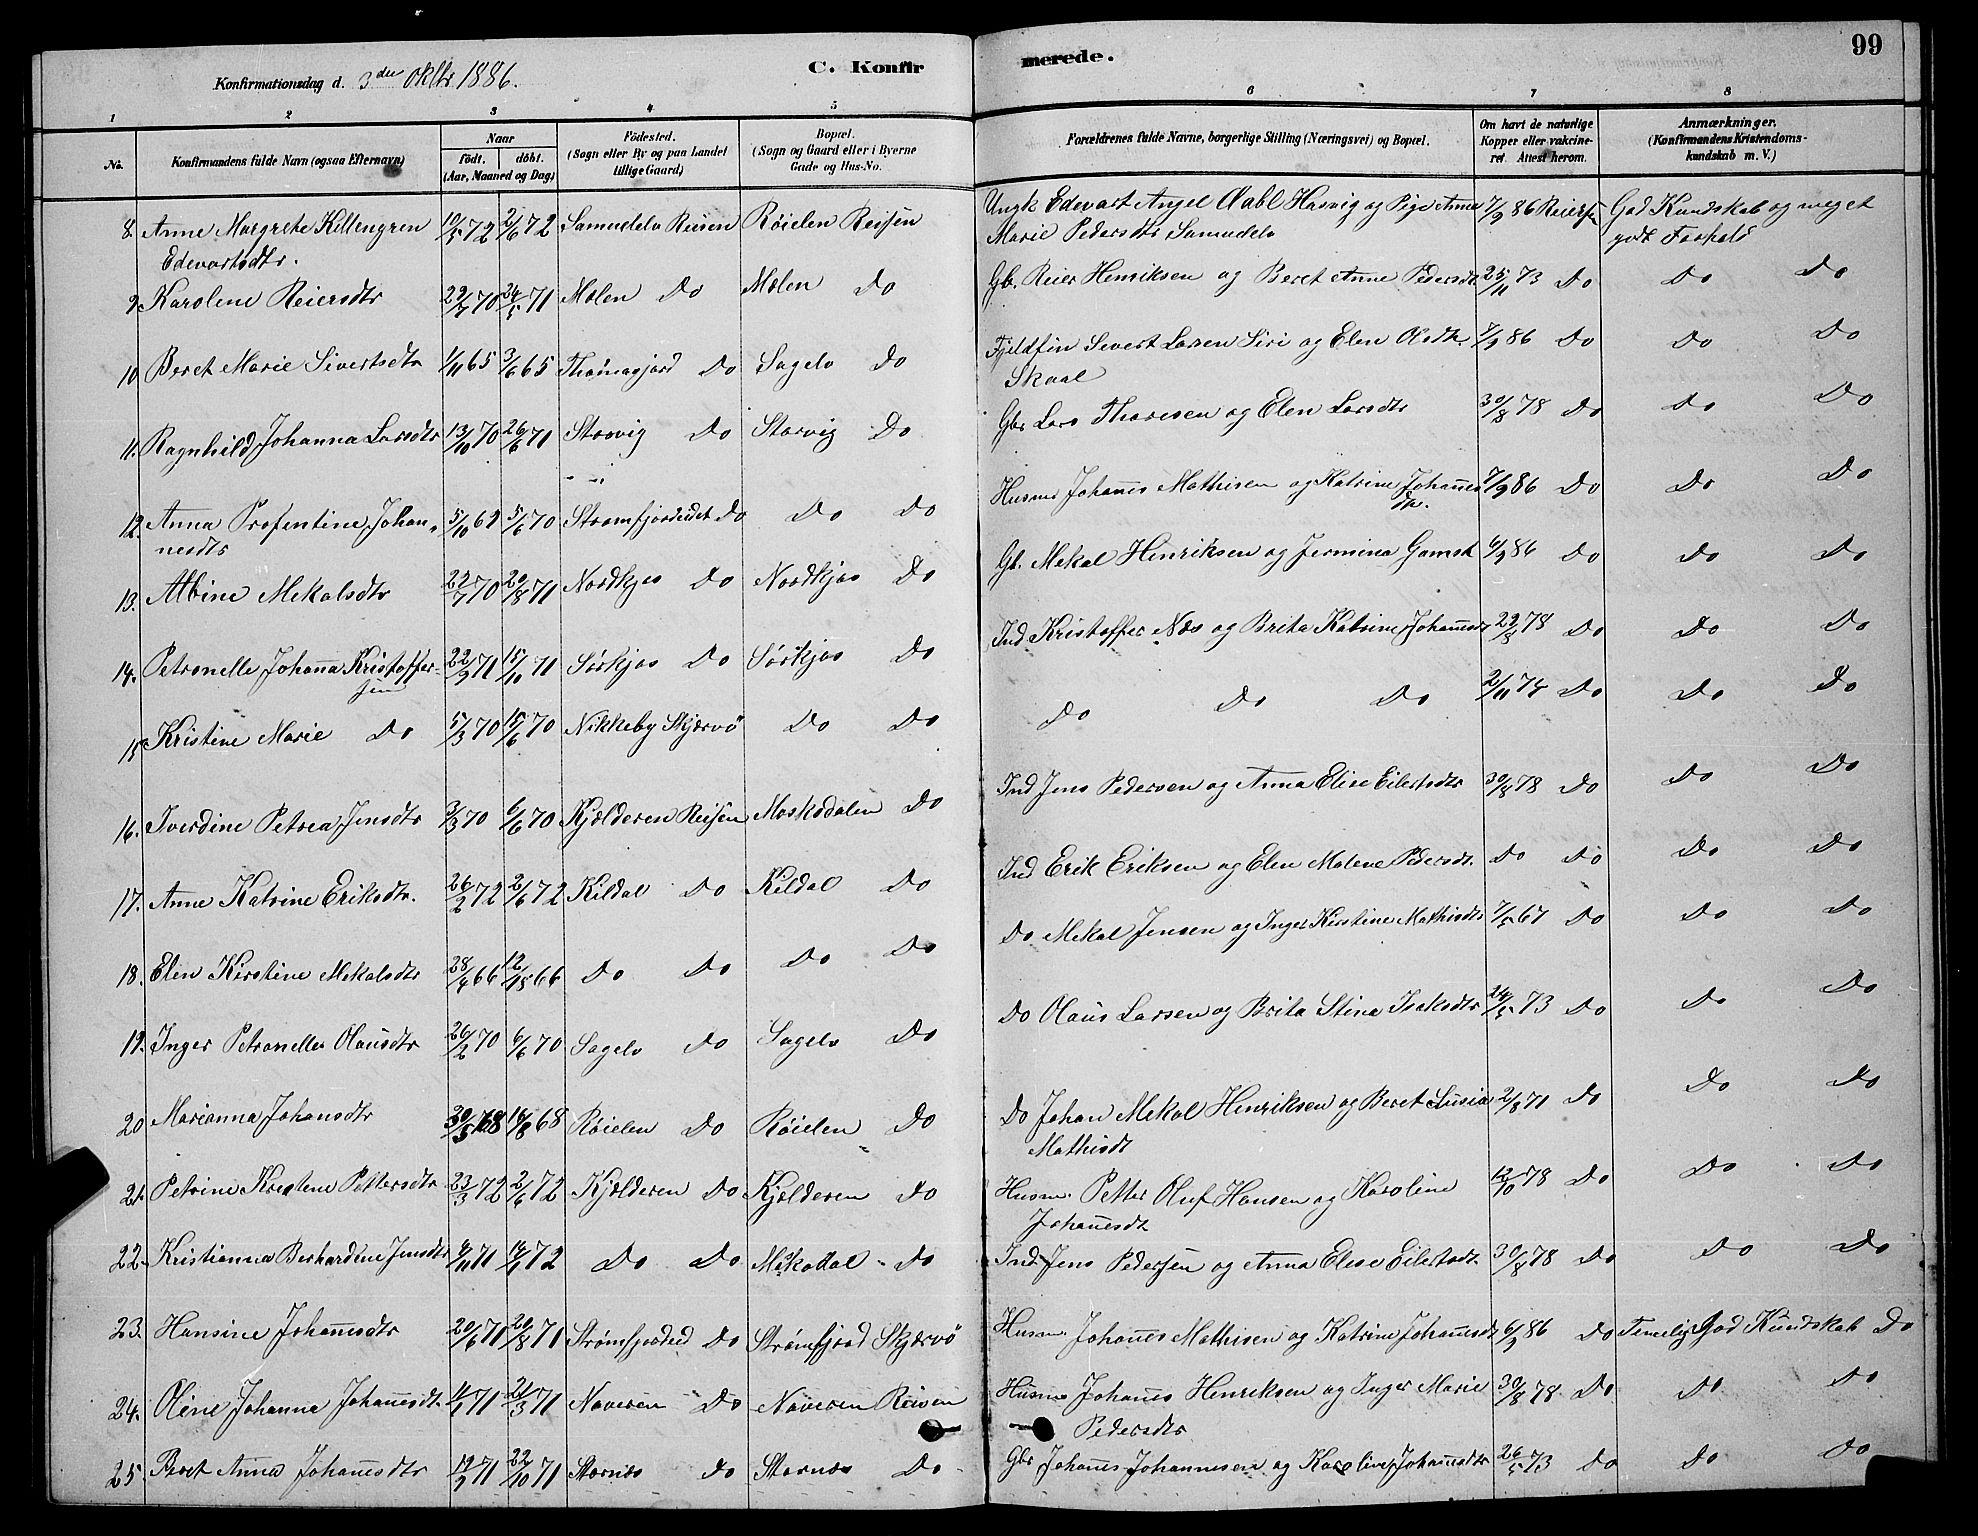 Konfirmationsdag d. 3die Oktbr 1886.
C. Konfir
merede.
99
1 2 3 4 5 6 7 8
No.
Konfirmandens fulde Navn (ogsaa Efternavn)
Naar
födt. döbt.
(Aar, Maaned og Dag)
Födested.
(Sogn eller By og paa Landet
tillige Gaard)
Bopæl.
(Sogn og Gaard eller i Byerne
Gade og Hus-No.
Forældrenes fulde Navne, borgerlige Stilling (Næringsvei) og Bopæl.
Om havt de naturlige
Kopper eller vakcine-
ret Attest herom.
Anmærkninger.
(Konfirmandens Kristendoms-
kundskab m. V.)
8. Anne Margrete Killengren 10/5 72 2/6 72 Samuelelv Reisen Röielen Reisen Ungk Edevart Angel Aabl Hasvig og Pige Anna 7/9 86 God Kundskab og meget
Edevartsdtr. Marie Pedersdtr Samuelelv godt Forhold
9. Karoline Reiersdtr 29/7 70 24/5 71 Molen Do Molen Do Gb. Reier Henriksen og Beret Anne Pedersdt 25/11 73 Do Do Do
10 Beret Marie Sivertsdtr 1/11 65 3/6 65 Do Sagelv Do Fjeldfin Sivert Larsen Siri og Elen 7/9 86 Do Do Do
Skaal
11. Ragnhild Johanna Larsdtr 13/10 70 26/6 71 Storvig Do Storvig Do Gbr Lars Thoresen og Elen Larsdtr 30/8 78 Do Do Do
12. Anna Profentine Johan- 5/10 69 5/6 70 Strømfjordeidet Do Do Do Husm Johanes Mathisen og Katrine Johanes 7/9 86 Do Do Do
nesdtr dtr.
13. Albine Mekalsdtr 22/7 70 20/8 71 Nordkjos Do Nordkjos Do Gb. Mekal Henriksen og Jermina Gamst 6/9 86 Do Do Do
14. Petronelle Johanna Kristoffer- 22/9 71 15/10 71 Sörkjos Do Sörkjos Do Ind Kristoffer Næs og Brita Katrine Johannesdt 78 Do Do Do
sen
15 Kristine Marie Do 5/3 70 15/6 70 Nikkeby Skjervö Do Do Do Do Do 2/11 74 Do Do Do
16. Iverdine Petrea Jensdtr 3/3 70 6/6 70 Kjelderen Reisen Moskodalen Do Ind Jens Pedersen og Anna Elise Eilertsdtr 30/8 78 Do Do Do
17. Anne Katrine Eriksdtr. 26/2 72 2/6 72 Kildal Do Kildal Do Ind Erik Eriksen og Elen Malene Pedersdt. Do Do Do Do
18. Elen Kirstine Mekalsdtr 28/4 66 12/8 66 Do Do Do Do Do Mekal Jensen og Inger Kirstine Mathisdtr 7/5 67 Do Do Do
19. Inger Petronelle Olausdtr 26/2 70 6/6 70 Sagelv Do Sagelv Do Do Olaus Larsen og Brita Stina Isaksdtr 24/5 73 Do Do Do
20 Marianna Johansdtr 30/5 68 16/8 68 Röielen Do Röielen Do Do Johan Mekal Henriksen og Beret Susia 2/8 71 Do Do Do
Mathisdt
21. Petrine Kirstene Pettersdtr 23/3 72 2/6 72 Kjelderen Do Kjelderen Do Husm. Petter Oluf Hansen og Karoline 12/10 78 Do Do Do
Johanesdt
22. Kristianna Berhardine Jensdtr 4/11 71 14/1 72 Do Do Do Ind Jens Pedersen og Anna Elise Eilertsdt. 30/8 78 Do Do Do
23. Hansine Johanesdtr 20/6 71 20/8 71 Strømfjordeid Do Strømfjord Skjervö Husm. Johanes Mathisen og Katrine Johanesdt 6/9 86 Do Temelig God Kundskab Do
24. Oline Johanna Johanesdt. 4/1 71 21/3 71 Naveren Do Naveren Reisen Husm Johanes Henriksen og Inger Marie 30/8 78 Do Do Do
Pedersdtr
25. Beret Anna Johanesdtr 19/9 71 22/10 71 Stornes Do Stornes Do Gbr Johanes Johannesen og Karoline Johanesdtr 26/5 73 Do Do Do